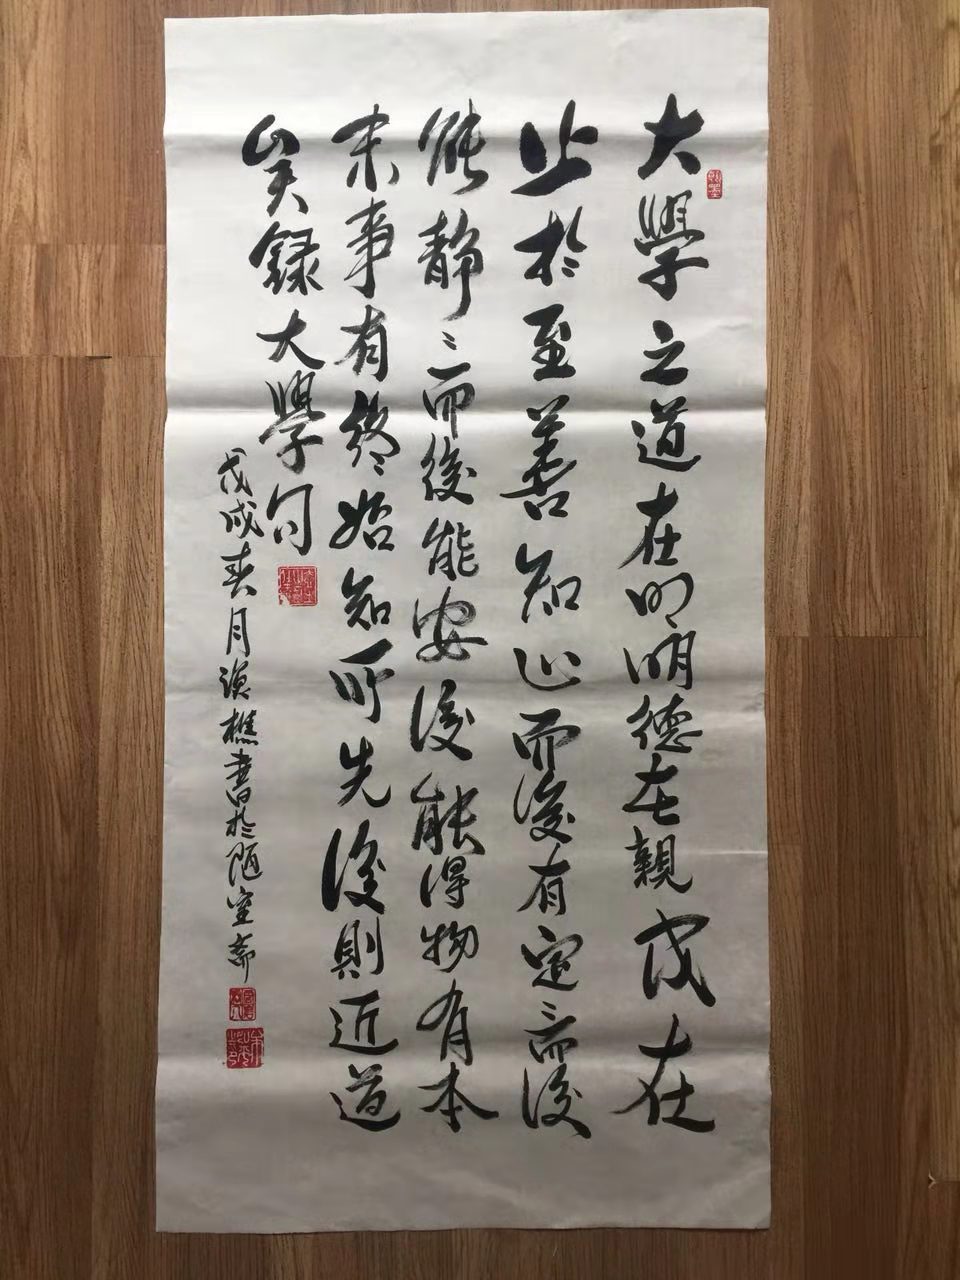 大學之道在明明德在親民在
止於至善知止而後有定〻而後
能靜〻而後能安後能得物有本
末事有終始知所先後則近道
矣錄大學句
戊戌春月漁樵書於陋室齋